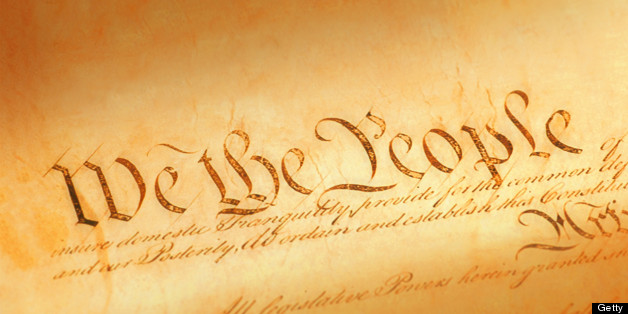 We the People
insure domestic Tranquility, provide for the common def
and our Posterity, do ordain and establish this Constitu
All legislative Powers herein granted
Getty